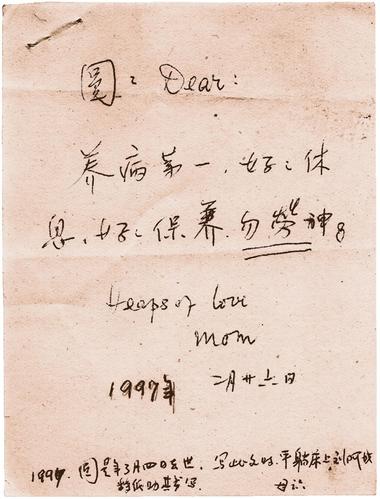 圓〻 Dear:
养病第一,好〻休
息,好〻保养,勿勞神。
Heaps of love
Mom
1997年 二月廿六日
1997. 圆是年3月四日去世. 写此文时. 平躺床上刘阿姨
纸助其书写. 母识